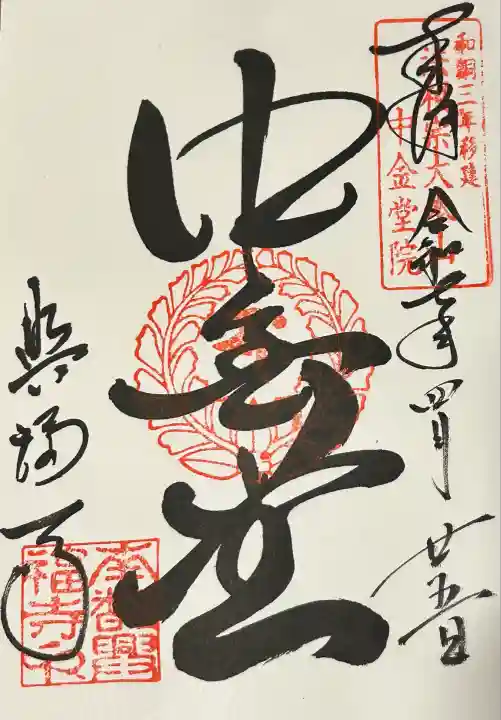 和銅三年移建
法相宗大本山
中金堂院
奉拝 令和七年四月廿五日
中金堂
興福寺
南都興
福寺印